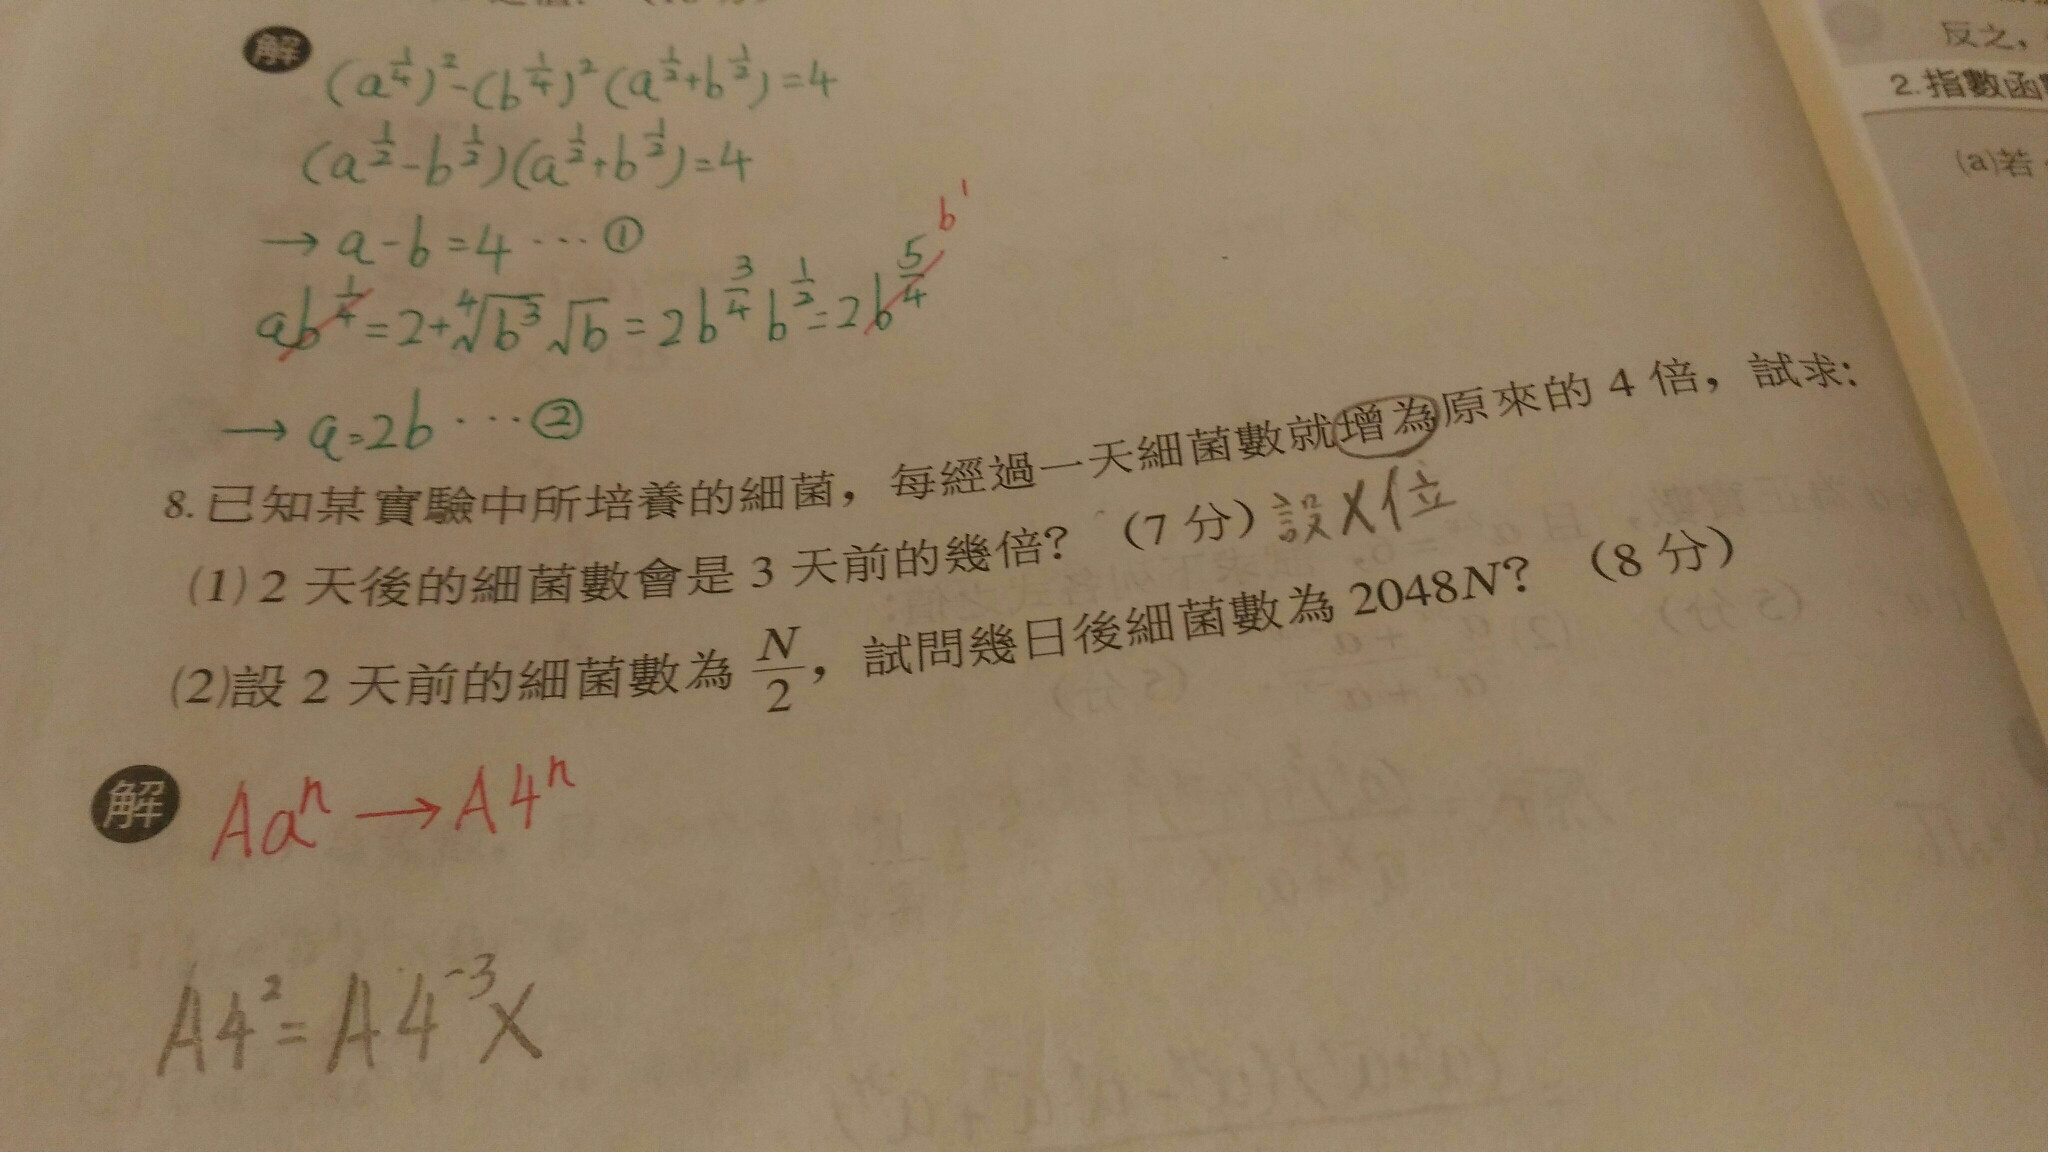 解
(a^{\frac{1}{4}})^2-(b^{\frac{1}{4}})^2(a^{\frac{1}{2}}+b^{\frac{1}{2}})=4
(a^{\frac{1}{2}}-b^{\frac{1}{2}})(a^{\frac{1}{2}}+b^{\frac{1}{2}})=4
→ a-b=4 ··· ①
b^1
ab^{\frac{1}{4}}=2+\sqrt[4]{b^3}\sqrt{b}=2b^{\frac{3}{4}}b^{\frac{1}{2}}=2b^{\frac{5}{4}}
→ a=2b ··· ②
8.已知某實驗中所培養的細菌，每經過一天細菌數就增為原來的 4 倍，試求：
(1) 2 天後的細菌數會是 3 天前的幾倍？（7 分）設X位
(2)設 2 天前的細菌數為 \frac{N}{2}，試問幾日後細菌數為 2048N？（8 分）
解 Aa^n → A4^n
A4^2=A4^{-3}X
反之，
2.指數函
(a)若